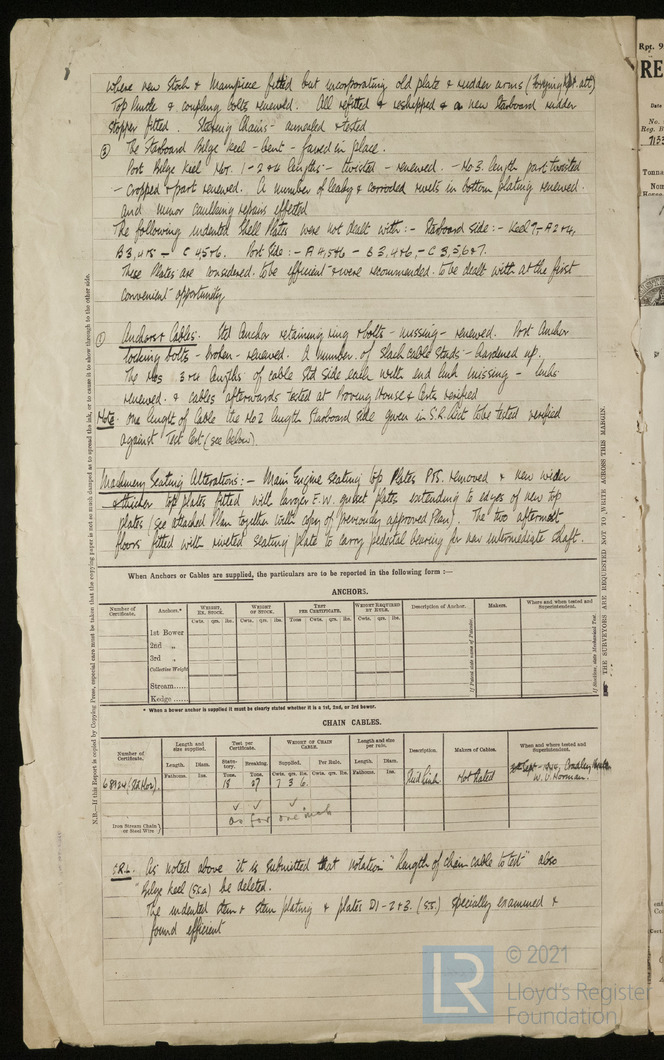 where new Stock & Mainpiece fitted but incorporating old plate & rudder arms (Forging Rpt. att)
Top Pintle & coupling bolts renewed. All refitted & reshipped & a new Starboard rudder
stopper fitted. Steering Chains - annealed & tested
② The Starboard Bilge Keel - bent - faired in place.
Port Bilge Keel Nos. 1-2 & 4 lengths - twisted - renewed. - No 3. length part twisted
- cropped & part renewed. A number of leaky & corroded rivets in bottom plating renewed.
and minor caulking repairs effected
The following indented Shell Plates were not dealt with :- Starboard Side :- Keel 9 - A 2 & 4,
B 3, 4 & 5 - C 4, 5 & 6. Port Side :- A 4, 5 & 6 - B 3, 4 & 6, - C 3, 5, 6 & 7.
These Plates are considered to be efficient & were recommended to be dealt with at the first
convenient opportunity
① Anchors & Cables. Stbd Anchor retaining ring & bolts - missing - renewed. Port Anchor
locking bolts - broken - renewed. A number of slack cable studs - hardened up.
The Nos 3 & 4 lengths of cable Stbd side each with end link missing - links
renewed. & cables afterwards tested at Proving House & Certs verified
Note: One length of Cable the No 2 length Starboard side given in S.R. List to be tested verified
against Test Cert (see below).
Machinery Seating Alterations :- Main Engine seating top Plates P&S. removed & new wider
& thicker top plates fitted with larger E.W. gusset plates extending to edges of new top
plates (see attached Plan together with copy of previously approved Plan). The two aftermost
floors fitted with riveted seating plate to carry pedestal bearing for new intermediate shaft.
When Anchors or Cables are supplied, the particulars are to be reported in the following form :—
ANCHORS.
Number of Certificate. Anchors.* WEIGHT, EX. STOCK. WEIGHT OF STOCK. TEST PER CERTIFICATE. WEIGHT REQUIRED BY RULE. Description of Anchor. Makers. Where and when tested and Superintendent.
Cwts. qrs. lbs. Cwts. qrs. lbs. Tons Cwts. qrs. lbs. Cwts. qrs. lbs.
1st Bower
2nd „
3rd „
Collective Weight
Stream.....
Kedge .....
If Patent state name of Patentee.
If Stockless, state Mechanical Test.
* When a bower anchor is supplied it must be clearly stated whether it is a 1st, 2nd, or 3rd bower.
CHAIN CABLES.
Number of Certificate. Length and size supplied. Test per Certificate. WEIGHT OF CHAIN CABLE. Length and size per rule. Description. Makers of Cables. When and where tested and Superintendent.
Length. Diam. Statutory. Breaking. Supplied. Per Rule. Length. Diam.
Fathoms. Ins. Tons. Tons. Cwts. qrs. lbs. Cwts. qrs. lbs. Fathoms. Ins.
18 27 7 3 6. Stud Link Not Stated W. U. Norman.
✓ ✓ ✓
as for one inch
Iron Stream Chain or Steel Wire }
S.R.L. As noted above it is submitted that notation "length of chain cable to test" also
"Bilge Keel (SSA) be deleted.
The indented stem & stem plating & plates D1-2 & 3. (SS) specially examined &
found efficient
N.B.—If this Report is copied by Copying Press, especial care must be taken that the copying paper is not so much damped as to spread the ink, or to cause it to show through to the other side.
THE SURVEYORS ARE REQUESTED NOT TO WRITE ACROSS THIS MARGIN.
Rpt. 9
RE
Date
No.
Reg. B
Tonna
Nom
© 2021
LR
Lloyd's Register
Foundation